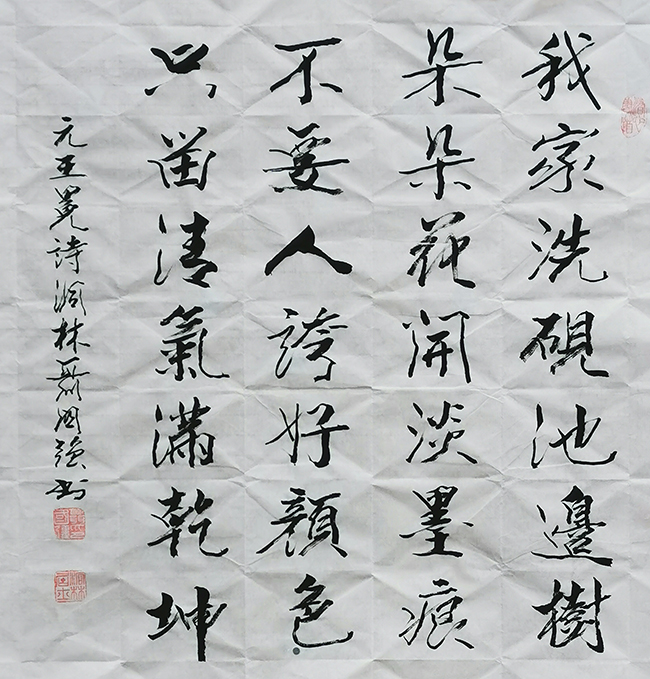 我家洗硯池邊樹
朵朵花開淡墨痕
不要人誇好顏色
只留清氣滿乾坤
元王冕詩澗林聶国強书